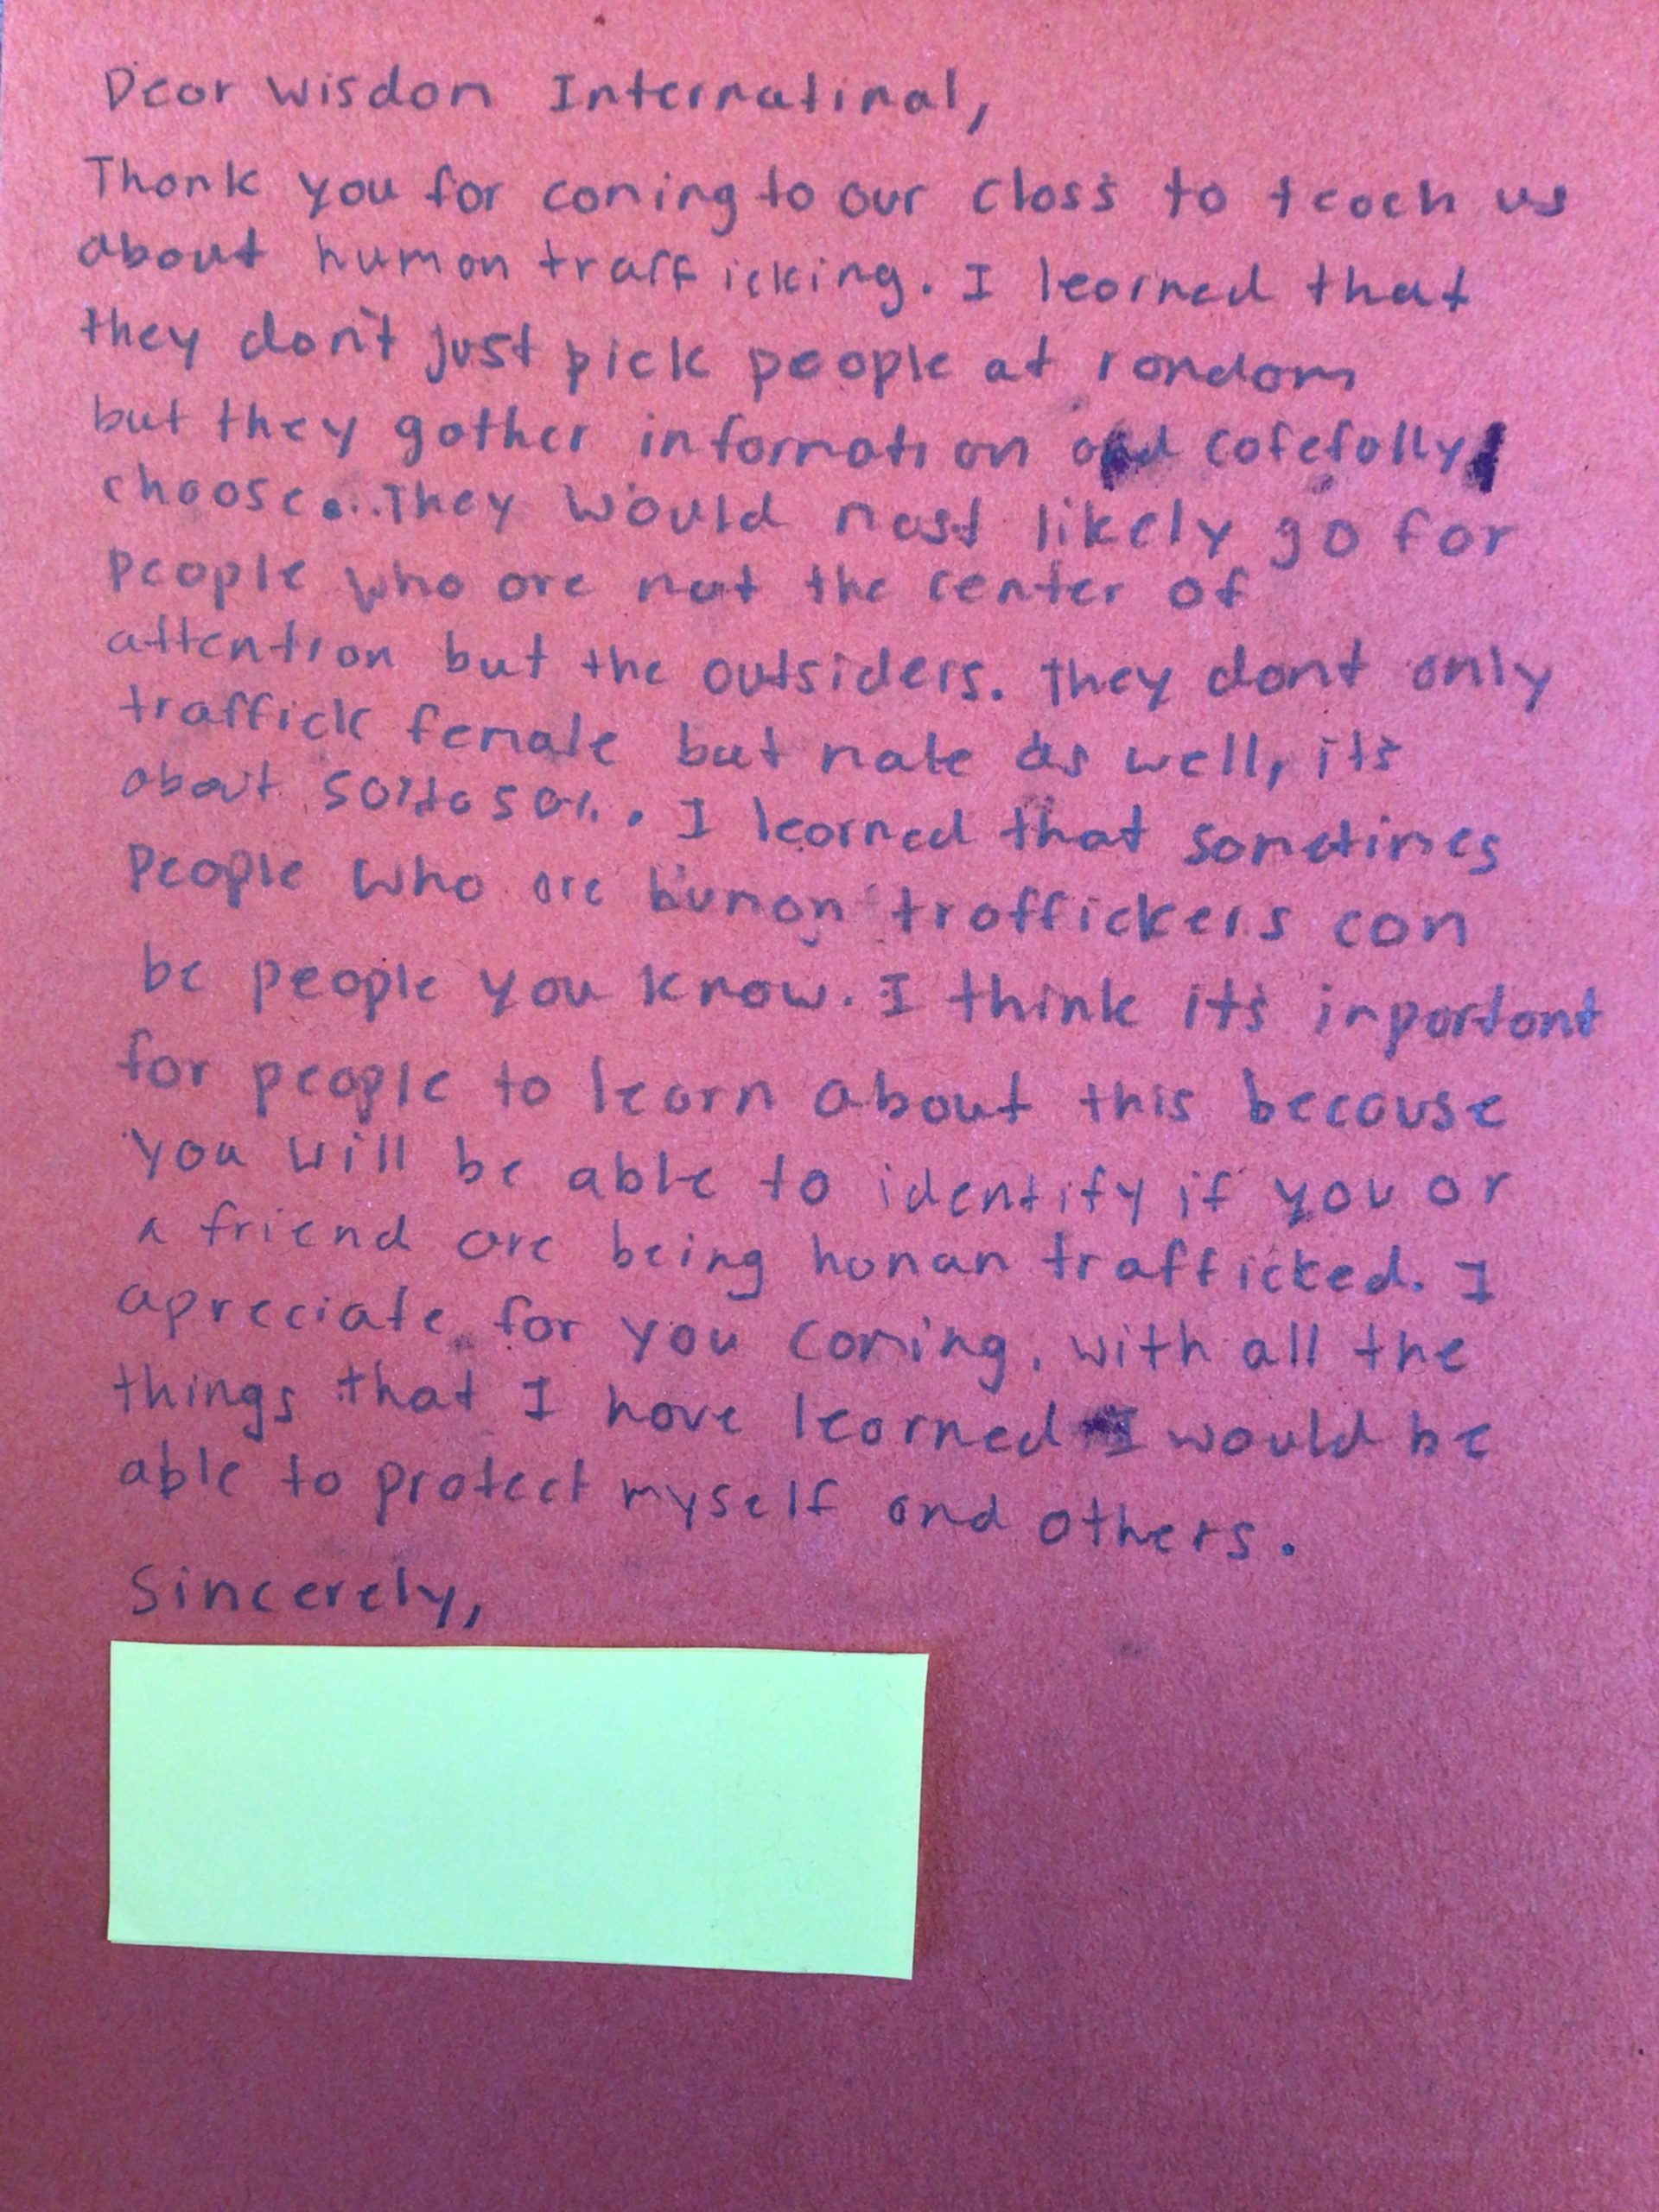 Dear Wisdom Internatinal,
Thank you for coming to our class to teach us
about human trafficking. I learned that
they don't just pick people at random
but they gather information and cofefolly
choose...They would most likely go for
people who are not the center of
attention but the outsiders. They dont only
traffick female but male as well, it's
about 50% to 50%. I learned that sometimes
people who are human traffickers can
be people you know. I think it's important
for people to learn about this because
you will be able to identify if you or
a friend are being human trafficked. I
apreciate for you coming, with all the
things that I have learned I would be
able to protect myself and others.
Sincerely,